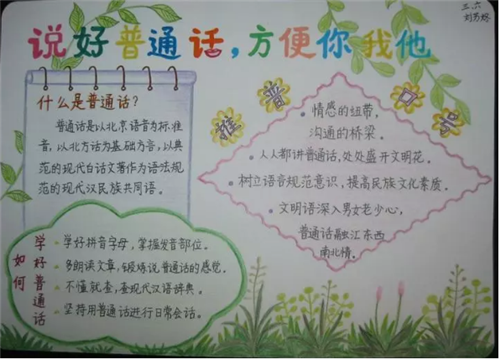 三.六
说好普通话,方便你我他
什么是普通话?
普通话是以北京语音为标准
音,以北方话为基础为音,以典
范的现代白话文著作为语法规
范的现代汉民族共同语。
推普口号
情感的纽带,
沟通的桥梁。
人人都讲普通话,处处盛开文明花。
树立语音规范意识,提高民族文化素质。
文明语深入男女老少心,
普通话融江东西
南北情。
如何
学好普通话
学好拼音字母,掌握发音部位。
多朗读文章,锻炼说普通话的感觉。
不懂就查,查现代汉语辞典。
坚持用普通话进行日常会话。